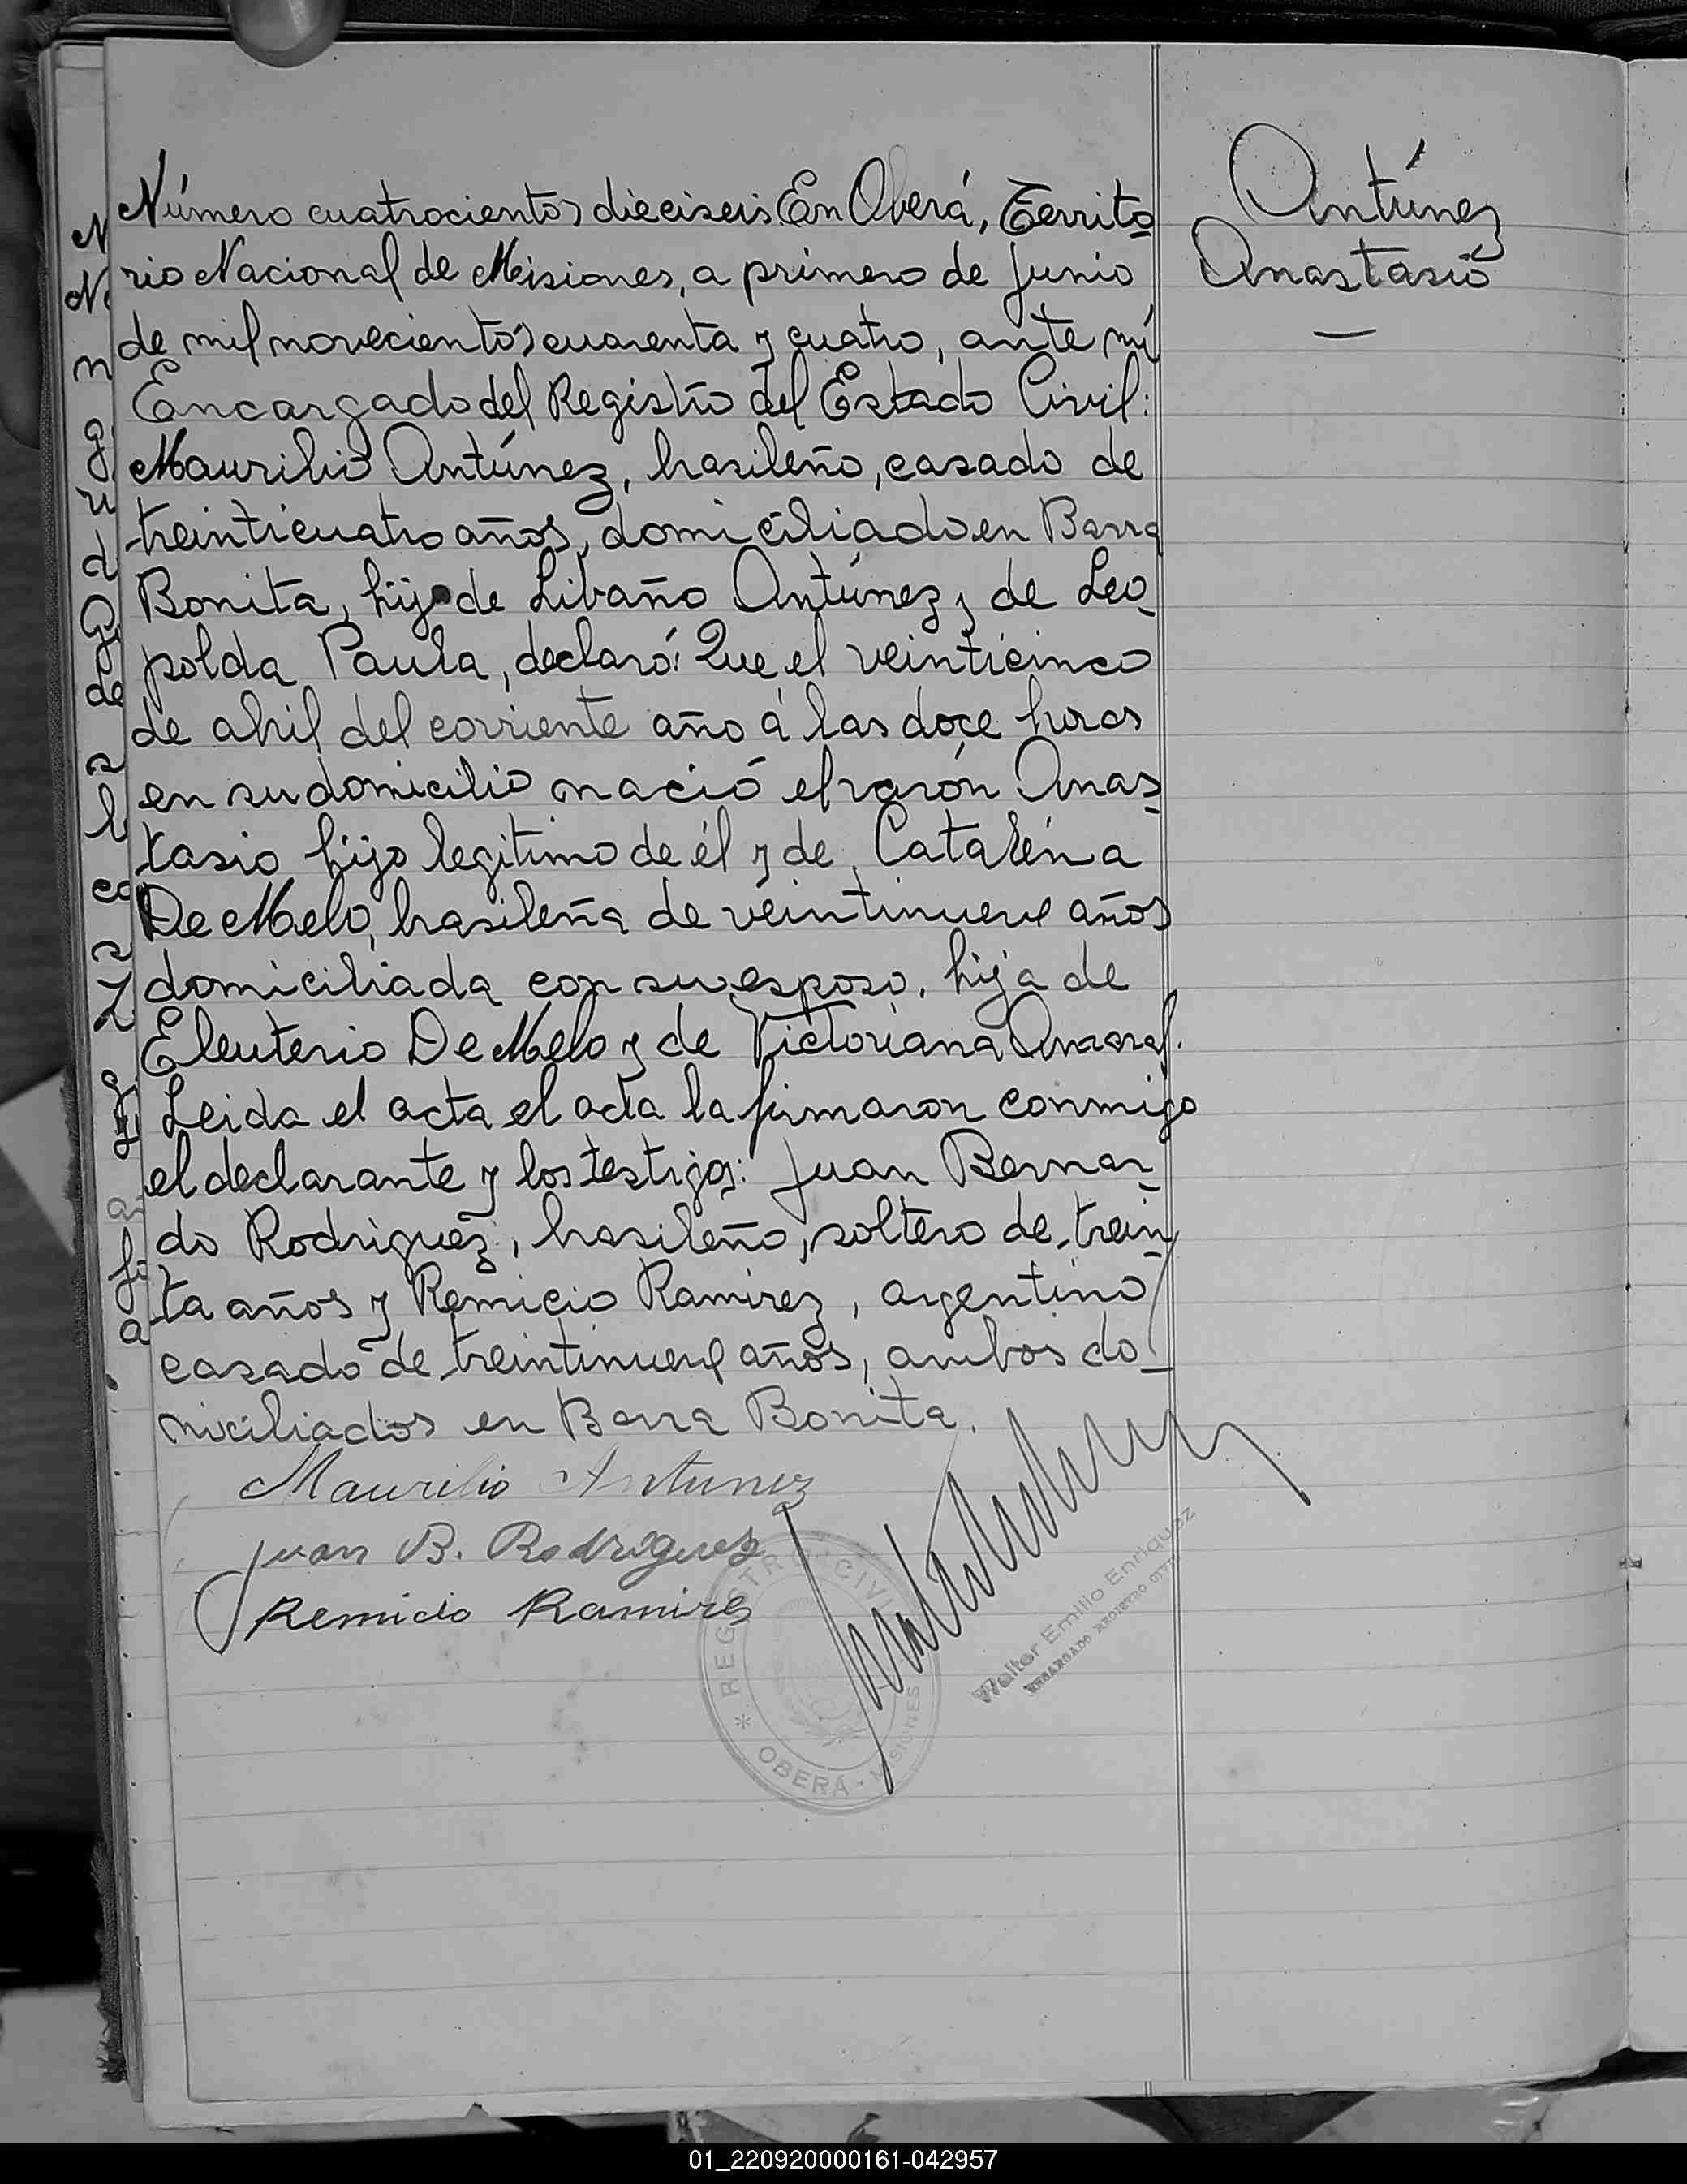 Número cuatrocientos dieciseis En Oberá, Territo
rio Nacional de Misiones, a primero de Junio
de mil novecientos cuarenta y cuatro, ante mí
Encargado del Registro del Estado Civil:
Maurilio Antúnez, brasileño, casado de
treinticuatro años, domiciliado en Barra
Bonita, hijo de Libaño Antúnez y de Leo
polda Paula, declaró: Que el veinticinco
de abril del corriente año á las doce horas
en su domicilio nació el varón Anas
tasio hijo legitimo de él y de Catalina
De Melo, brasileña de veintinueve años
domiciliada con su esposo, hija de
Eleuterio De Melo y de Victoriana Amaral.
Leida el acta el acta la firmaron conmigo
el declarante y los testigos: Juan Bernar
do Rodriguez, brasileño, soltero de trein
ta años y Remicio Ramirez, argentino
casado de treintinueve años, ambos do
miciliados en Barra Bonita.
Maurilio Antunez
Juan B. Rodriguez
Remicio Ramires
REGISTRO CIVIL
* OBERÁ - MISIONES
Walter Emilio Enriquez
ENCARGADO REGISTRO CIVIL
Antúnez
Anastasio
01_220920000161-042957